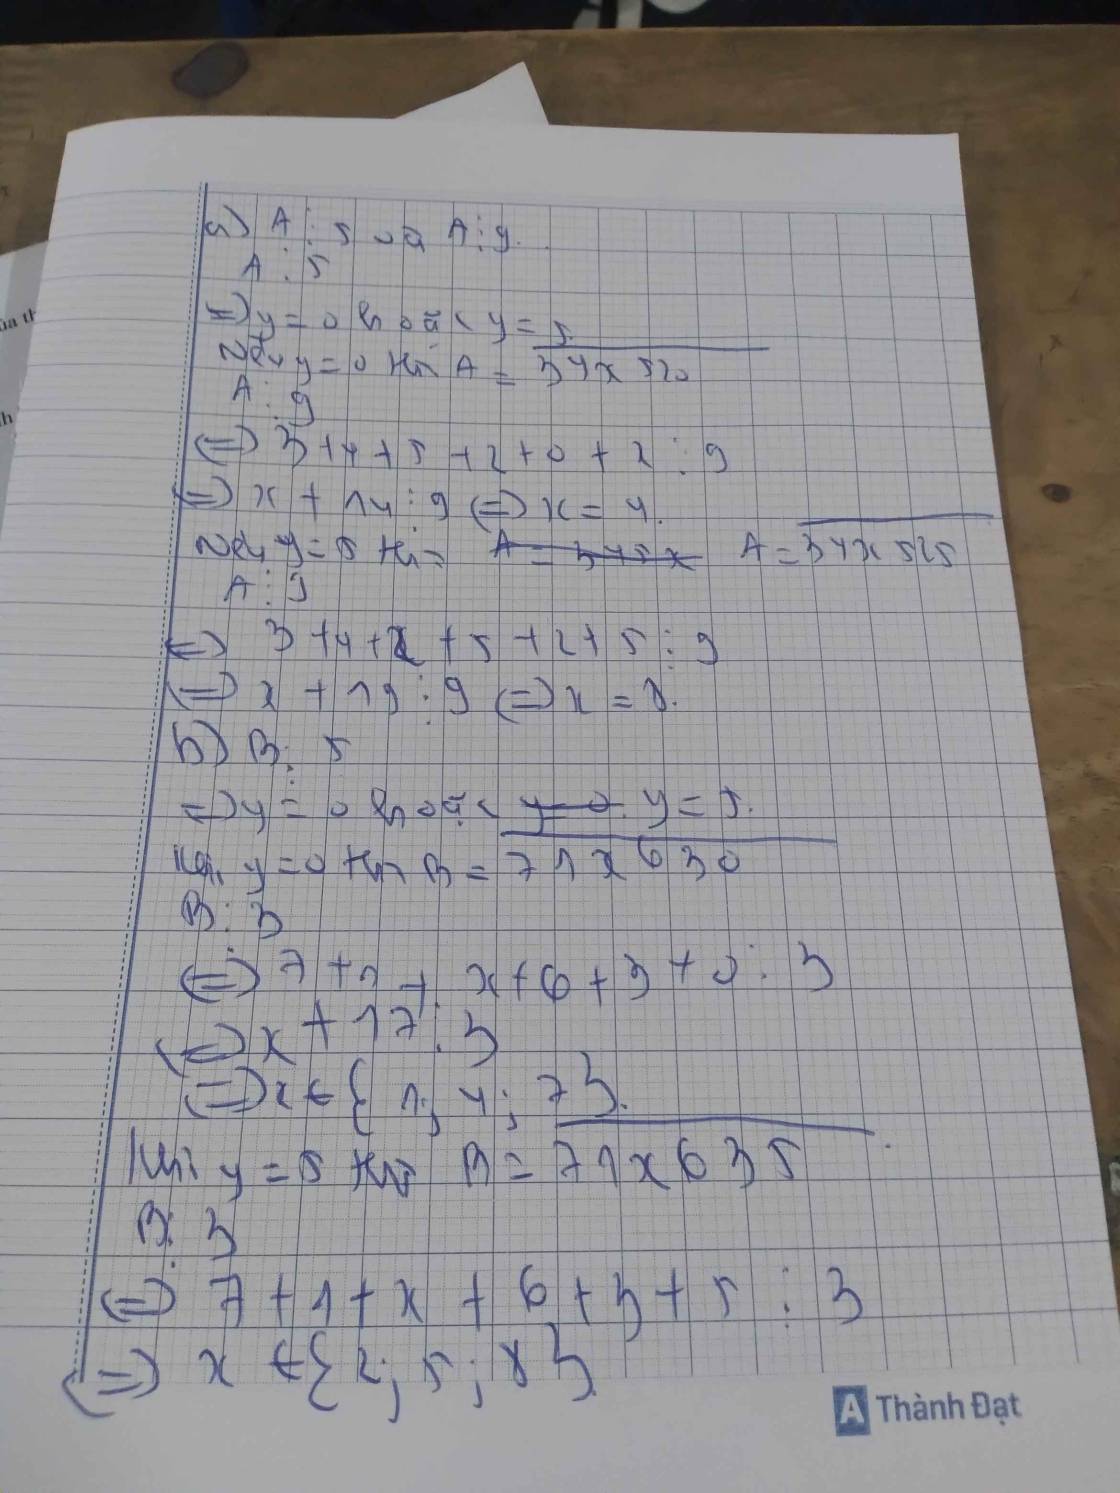 a) A ⋮ 5 và A ⋮ 9.
A ⋮ 5
=> y = 0 hoặc y = 5.
Nếu y = 0 thì A = 34x520
A ⋮ 9
<=> 3 + 4 + 5 + 2 + 0 + x ⋮ 9
<=> x + 14 ⋮ 9 <=> x = 4.
Nếu y = 5 thì A = 345x A = 34x525
A ⋮ 9
<=> 3 + 4 + x + 5 + 2 + 5 ⋮ 9
<=> x + 19 ⋮ 9 <=> x = 8.
b) B ⋮ 5
=> y = 0 hoặc y = 0 y = 5.
Khi y = 0 thì B = 71x630
B ⋮ 3
<=> 7 + 1 + x + 6 + 3 + 0 ⋮ 3
<=> x + 17 ⋮ 3
<=> x ∈ { 1; 4; 7}.
Khi y = 5 thì B = 71x635
B ⋮ 3
<=> 7 + 1 + x + 6 + 3 + 5 ⋮ 3
<=> x ∈ {2; 5; 8}
A Thành Đạt